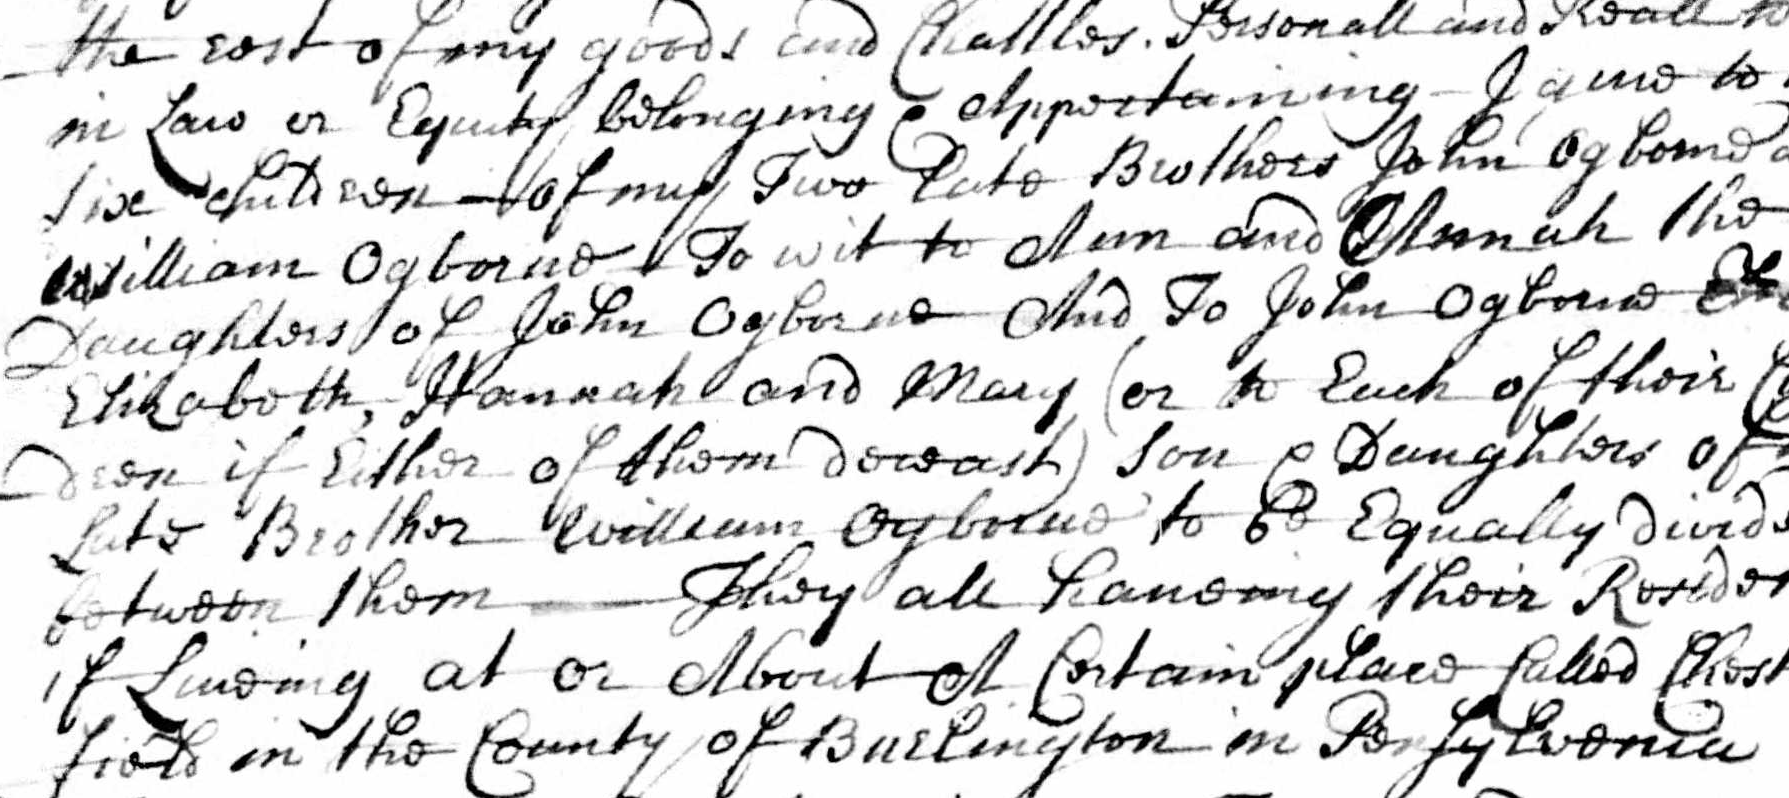 the rest of my goods and Chattles. Personall and Reall
in Law or Equity belonging & Appertaining - I giue to
six children - of my Two Late Brothers John Ogborne
William Ogborne - To wit to Ann and Annah the
Daughters of John Ogborne And To John Ogborne
Elizabeth, Hannah and Mary (or to Each of their
dren if Either of them deceast) Son & Daughters of
Late Brother William Ogborne to be Equally divide
between them - They all haueing their Residen
if Liueing at or About A Certain place Called Chest
field in the County of Burlington in Pensylvenia